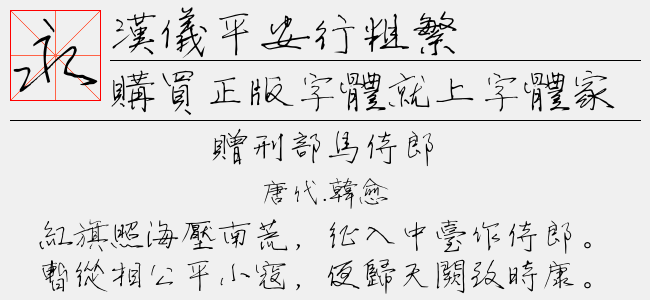 永
漢儀平安行粗繁
購買正版字體就上字體家
贈刑部馬侍郎
唐代.韓愈
紅旗照海壓南荒，征入中臺作侍郎。
暫從相公平小寇，便歸天闕致時康。